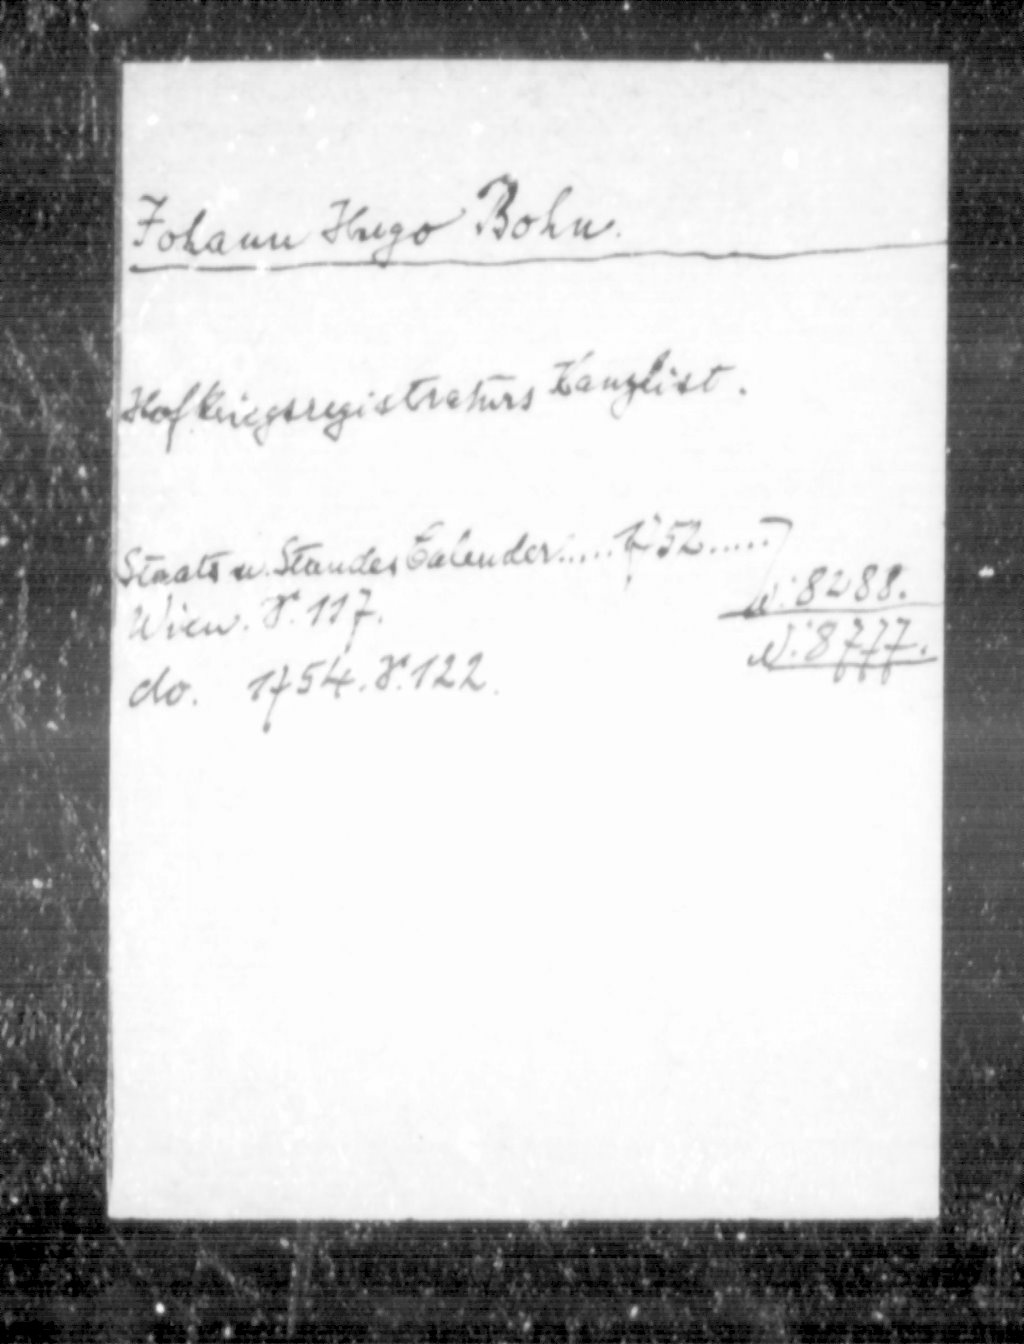 Johann Hugo Bohn.
Hofkriegsregistraturs Kanzlist.
Staats u. Standes Calender.....1752.....
Wien. S. 117.
N: 8288.
do. 1754. S. 122.
N: 8777.